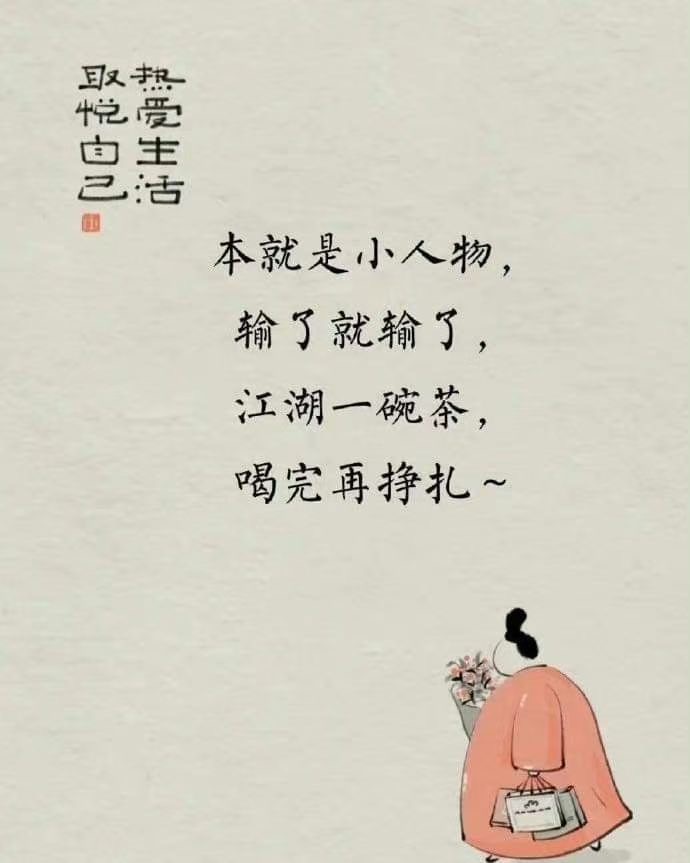 热爱生活
取悦自己
本就是小人物，
输了就输了，
江湖一碗茶，
喝完再挣扎～